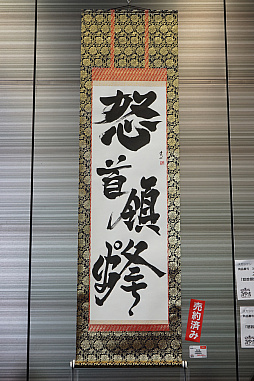 怒首領蜂
売約済み